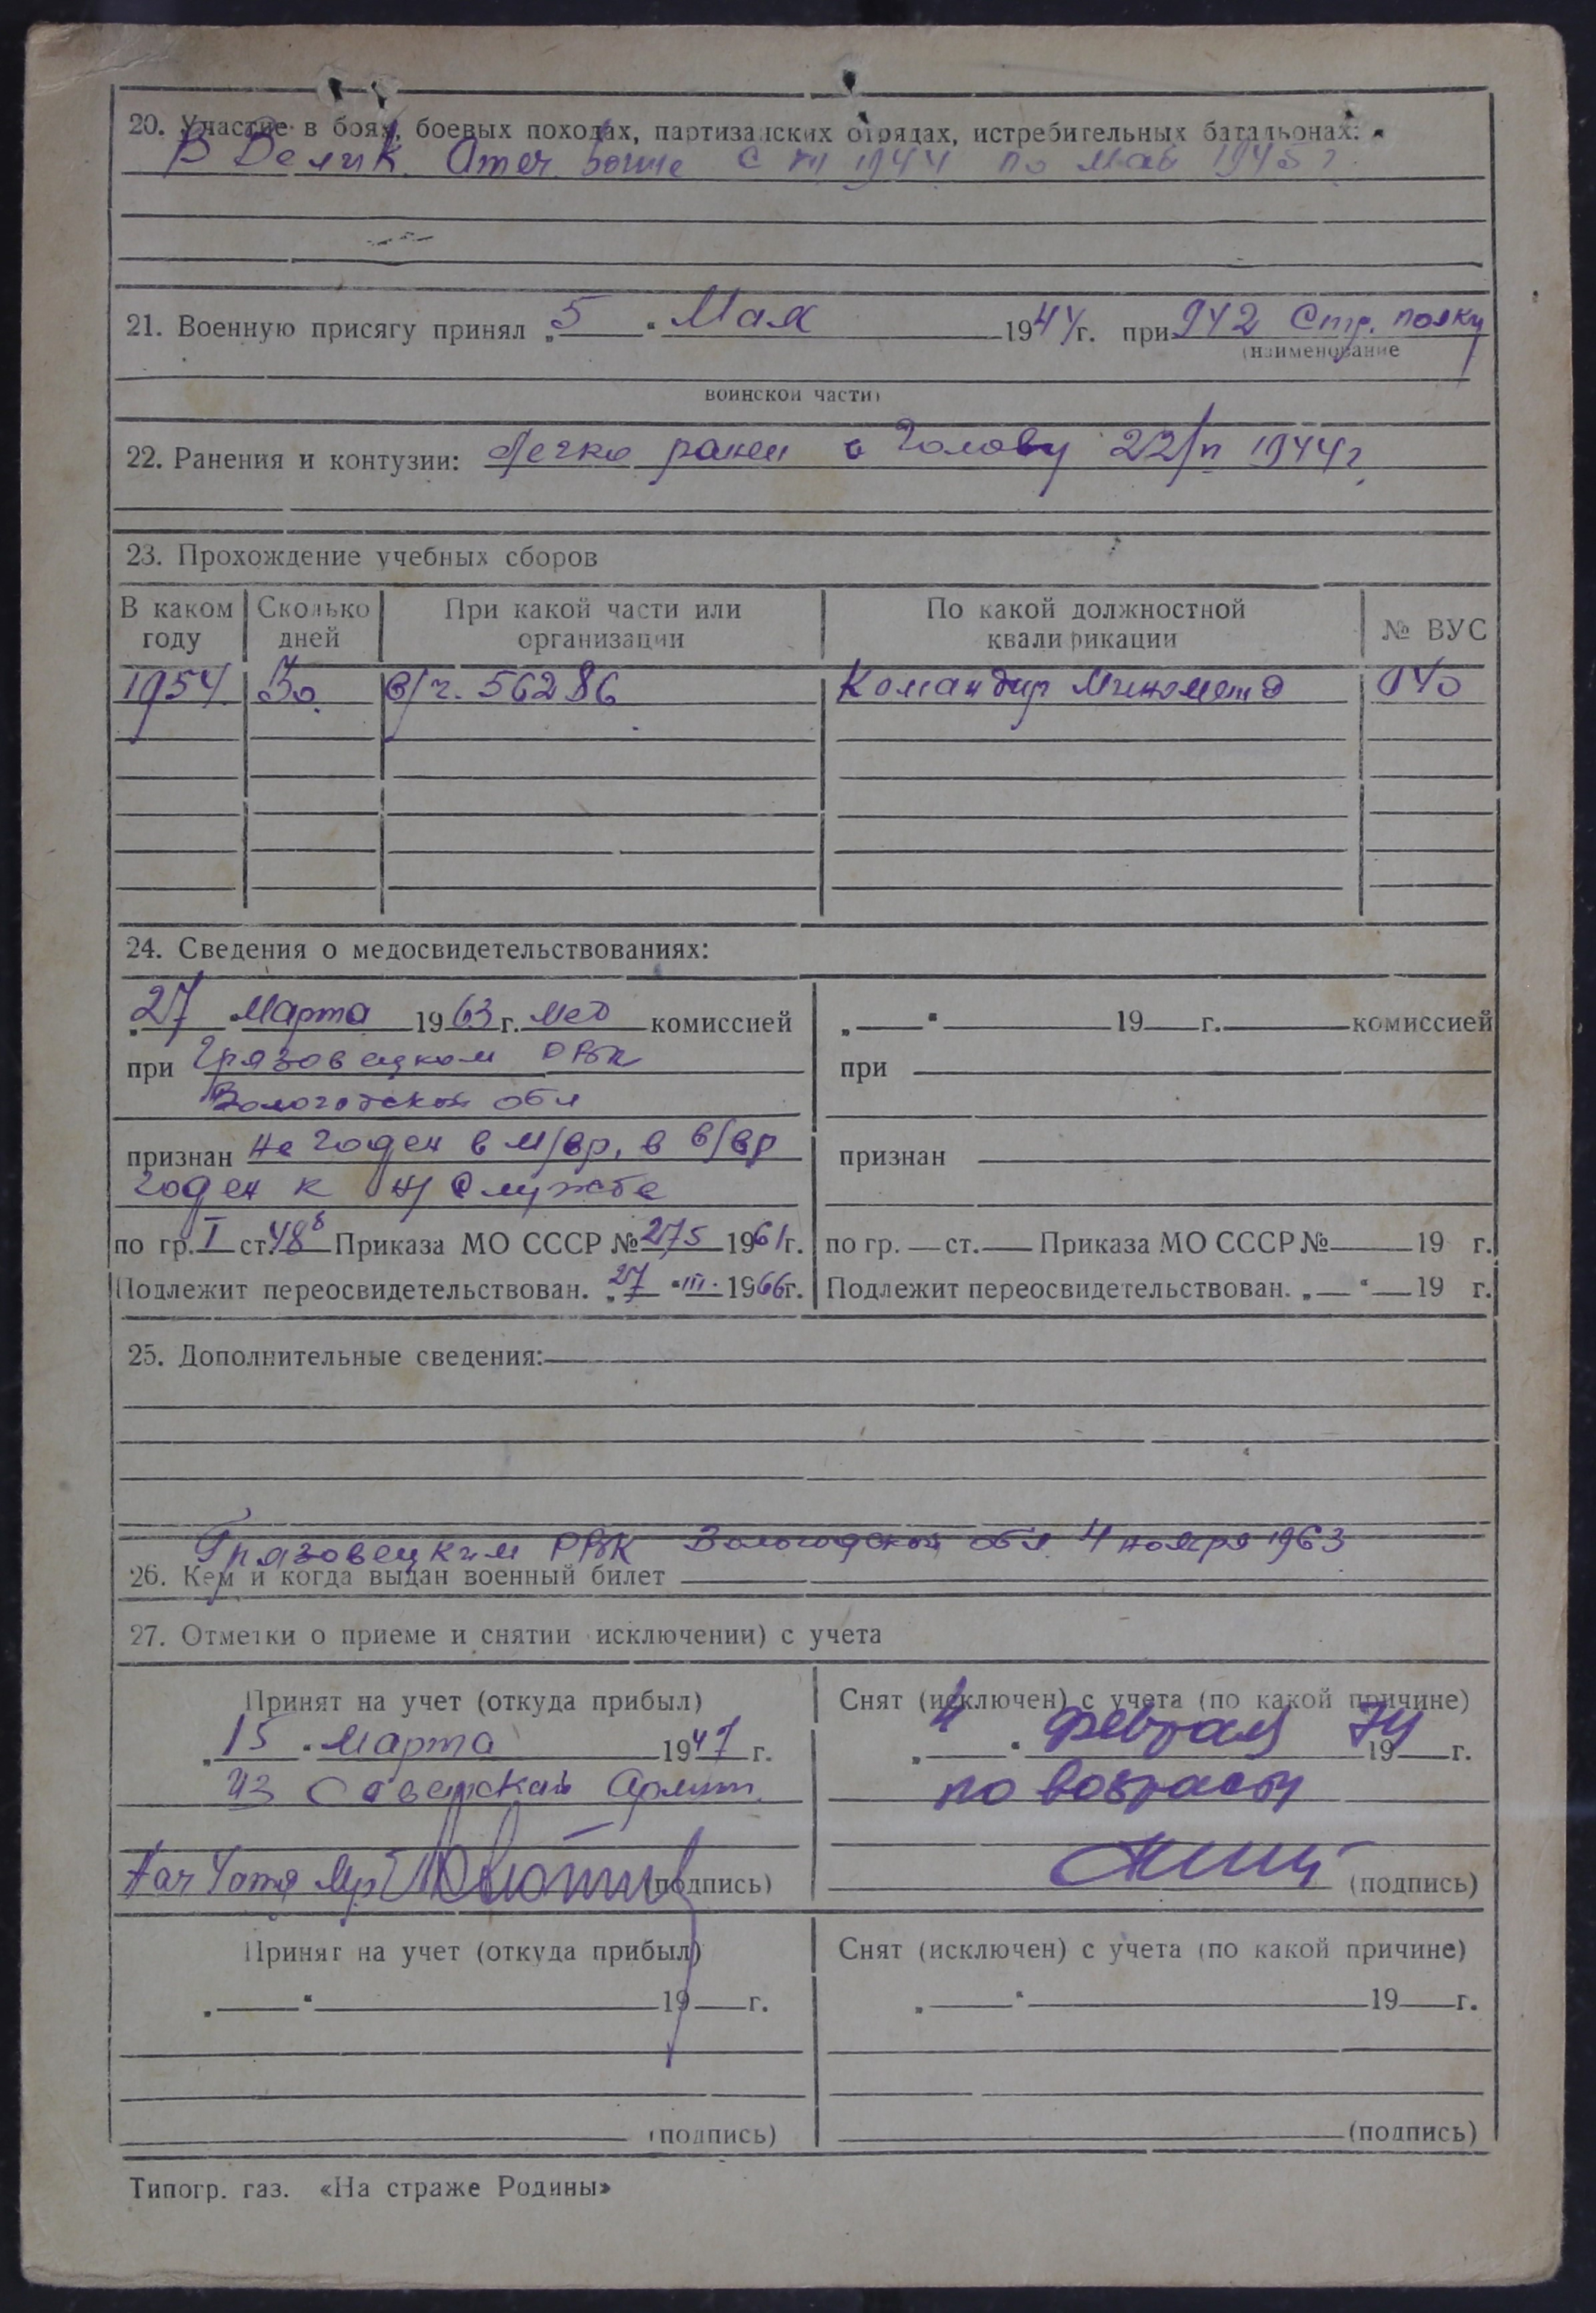 20. Участие в боях, боевых походах, партизанских отрядах, истребительных батальонах:
В Велик. Отеч. войне с 1944 по май 1945 г.
21. Военную присягу принял „5" Мая 1944 г. при 942 Стр. полку
(наименование
воинской части)
22. Ранения и контузии: Легко ранен в голову 22/ 1944 г.
23. Прохождение учебных сборов
В каком году Сколько дней При какой части или организации По какой должностной квалификации № ВУС
1954 30 в/ч. 56286 Командир Миномета
24. Сведения о медосвидетельствованиях:
„27" Марта 1963 г. Мед комиссией
при Грязовецком РВК
Вологодской обл
признан не годен в м/вр, в в/вр
годен к н/службе
по гр. I ст. 48б Приказа МО СССР № 275 1961 г.
Подлежит переосвидетельствован. „27" III 1966 г.
„ " 19 г. комиссией
при
признан
по гр. ст. Приказа МО СССР № 19 г.
Подлежит переосвидетельствован. „ " 19 г.
25. Дополнительные сведения:
Грязовецким РВК Вологодской обл. 4 ноября 1963
26. Кем и когда выдан военный билет
27. Отметки о приеме и снятии исключении) с учета
Принят на учет (откуда прибыл)
„15" Марта 1947 г.
из Советской Армии
(подпись)
Снят (исключен) с учета (по какой причине)
„4" февраля 1974 г.
по возрасту
(подпись)
Принят на учет (откуда прибыл)
„ " 19 г.
(подпись)
Снят (исключен) с учета (по какой причине)
„ " 19 г.
(подпись)
Типогр. газ. «На страже Родины»